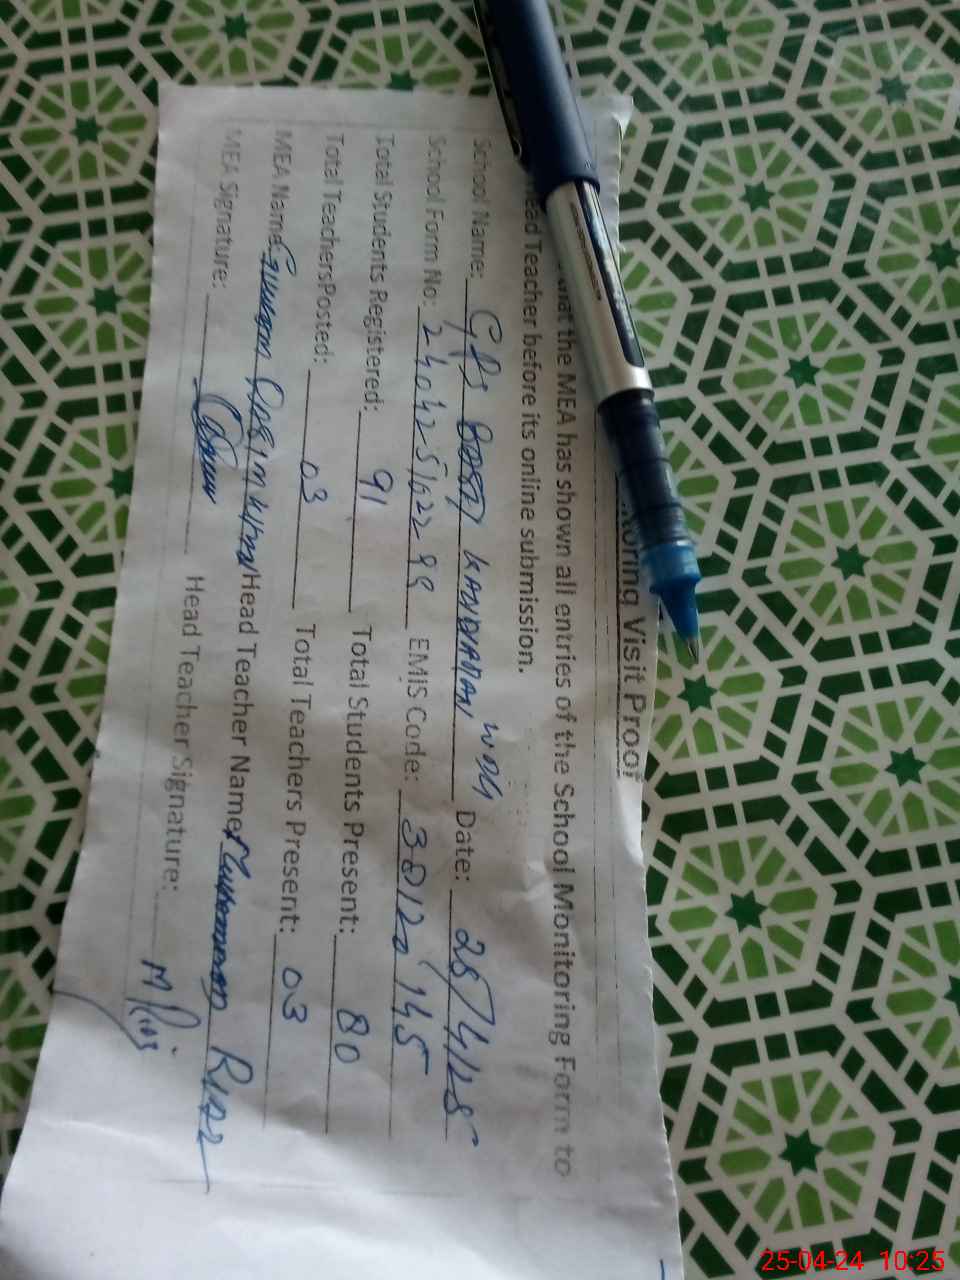 oring Visit Proof
that the MEA has shown all entries of the School Monitoring Form to
Head Teacher before its online submission.
School Name: GPS Date: 25/4/25
School Form No: EMIS Code: 38120145
Total Students Registered: 91 Total Students Present: 80
Total TeachersPosted: 03 Total Teachers Present: 03
MEA Name: Head Teacher Name: Muhammad Riaz
MEA Signature: Head Teacher Signature: M Riaz
25-04-24 10:25